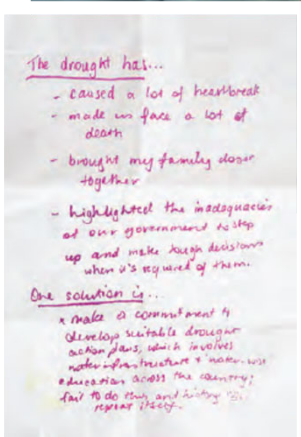 The drought has...
- caused a lot of heartbreak
- made us face a lot of
death
- brought my family closer
together
- highlighted the inadequacies
of our government to step
up and make tough decisions
when it's required of them.
One solution is...
* make a commitment to
develop suitable drought
action plans, which involves
water infrastructure & water-use
education across the country;
fail to do this and history
repeat itself.